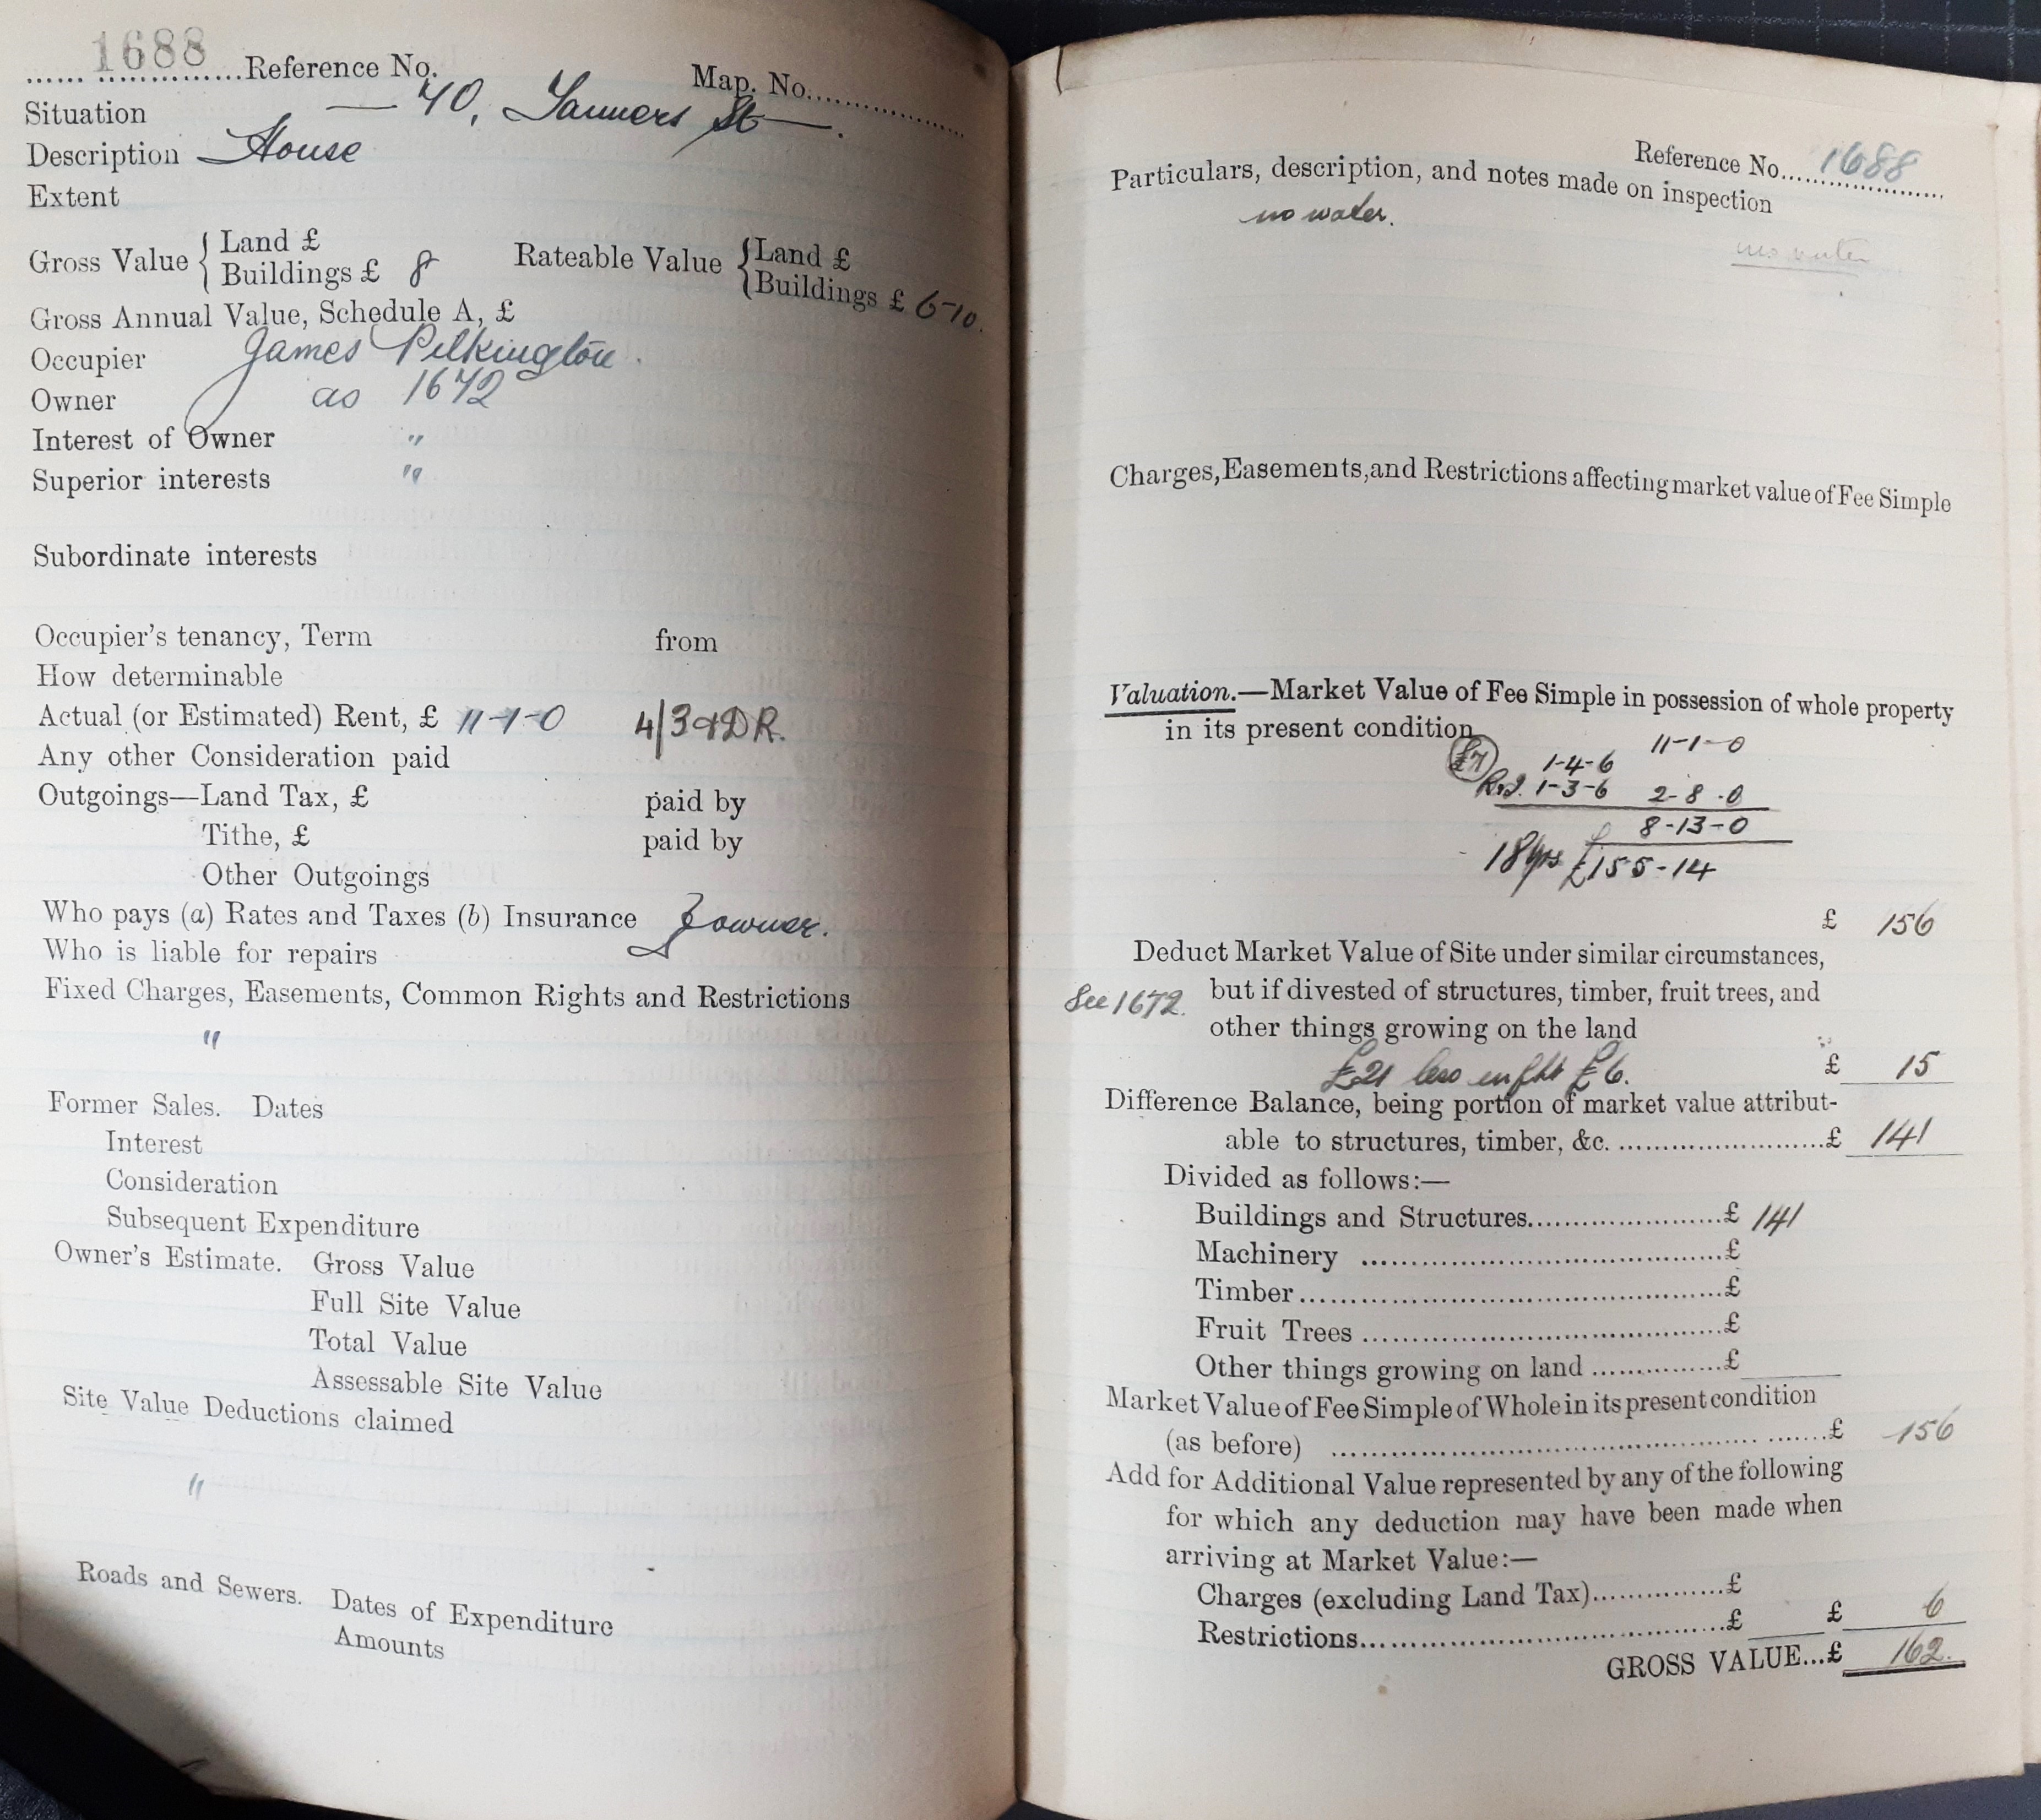 1688 Reference No. Map. No.
Situation — 40, Tanners St —.
Description House
Extent
Gross Value { Land £
Buildings £ 8
Rateable Value { Land £
Buildings £ 6-10.
Gross Annual Value, Schedule A, £
Occupier James Pilkington.
Owner as 1672
Interest of Owner "
Superior interests "
Subordinate interests
Occupier's tenancy, Term from
How determinable
Actual (or Estimated) Rent, £ 11-1-0 4/3 & DR.
Any other Consideration paid
Outgoings—Land Tax, £ paid by
Tithe, £ paid by
Other Outgoings
Who pays (a) Rates and Taxes (b) Insurance } owner.
Who is liable for repairs
Fixed Charges, Easements, Common Rights and Restrictions
"
Former Sales. Dates
Interest
Consideration
Subsequent Expenditure
Owner's Estimate. Gross Value
Full Site Value
Total Value
Assessable Site Value
Site Value Deductions claimed
"
Roads and Sewers. Dates of Expenditure
Amounts
Reference No. 1688
Particulars, description, and notes made on inspection
no water.
no water
Charges, Easements, and Restrictions affecting market value of Fee Simple
Valuation.—Market Value of Fee Simple in possession of whole property
in its present condition
11-1-0
£7 1-4-6
1-3-6 2-8-0
8-13-0
18 yrs £155-14
£ 156
Deduct Market Value of Site under similar circumstances,
See 1672. but if divested of structures, timber, fruit trees, and
other things growing on the land
£21 less £6. £ 15
Difference Balance, being portion of market value attribut-
able to structures, timber, &c. £ 141
Divided as follows:—
Buildings and Structures £ 141
Machinery £
Timber £
Fruit Trees £
Other things growing on land £
Market Value of Fee Simple of Whole in its present condition
(as before) £ 156
Add for Additional Value represented by any of the following
for which any deduction may have been made when
arriving at Market Value:—
Charges (excluding Land Tax) £
Restrictions £ £ 6
GROSS VALUE...£ 162.